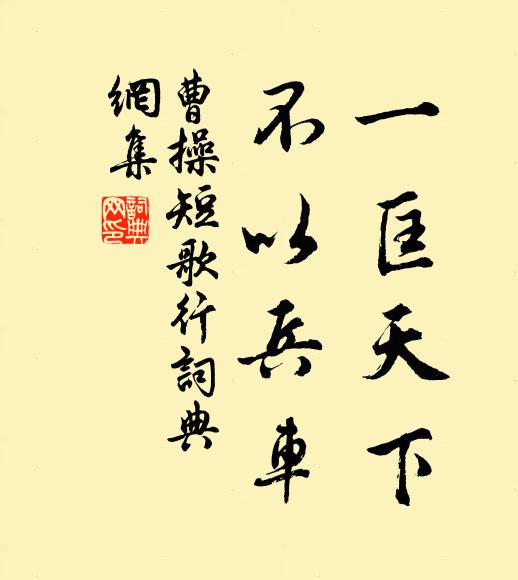 一匡天下
不以兵車
曹操短歌行詞典
網集
詞典
网印